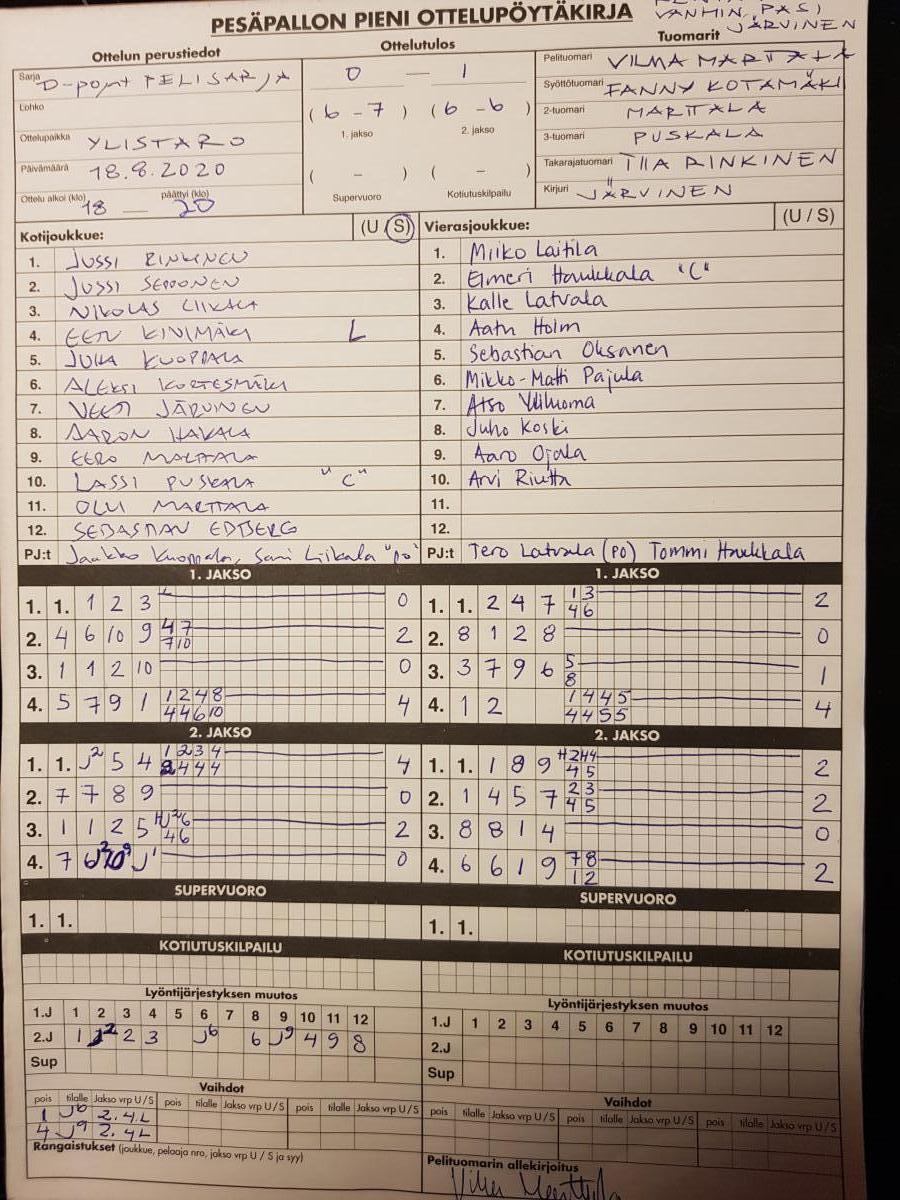 PESÄPALLON PIENI OTTELUPÖYTÄKIRJA
VANHIN, PASI
JÄRVINEN
Ottelun perustiedot
Ottelutulos
Tuomarit
Sarja D-pojat PELISARJA
0 — 1
Pelituomari VILMA MARTTALA
Lohko
( 6 - 7 ) ( 6 - 6 )
1. jakso 2. jakso
Syöttötuomari FANNY KOTAMÄKI
2-tuomari MARTTALA
Ottelupaikka YLISTARO
3-tuomari PUSKALA
Päivämäärä 18.8.2020
( - ) ( - )
Takarajatuomari TIIA RINKINEN
Ottelu alkoi (klo) päättyi (klo)
18 — 20
Supervuoro Kotiutuskilpailu
Kirjuri JÄRVINEN
Kotijoukkue: (U / S) Vierasjoukkue: (U / S)
1. JUSSI RINKINEN 1. Miiko Laitila
2. JUSSI SEPPONEN 2. Eimeri Haukkala "C"
3. NIKOLAS LIIKALA 3. Kalle Latvala
4. EETU KIVIMÄKI L 4. Aatu Holm
5. JUKA KUOPPALA 5. Sebastian Oksanen
6. ALEKSI KORTESMÄKI 6. Mikko-Matti Pajula
7. VEETI JÄRVINEN 7. Atso Yliluoma
8. AARON HAKALA 8. Juho Koski
9. EERO MARTTALA 9. Aaro Ojala
10. LASSI PUSKALA "C" 10. Arvi Riutta
11. OLLI MARTTALA 11.
12. SEBASTIAN EDBERG 12.
PJ:t Jaakko Kuoppala, Sami Liikala "po" PJ:t Tero Latvala (PO) Tommi Haukkala
1. JAKSO 1. JAKSO
1. 1. 1 2 3 0 1. 1. 2 4 7 1 3 2
4 6
2. 4 6 10 9 4 7 2 2. 8 1 2 8 0
7 10
3. 1 1 2 10 0 3. 3 7 9 6 5 1
8
4. 5 7 9 1 1 2 4 8 4 4. 1 2 1 4 4 5 4
4 4 6 10 4 4 5 5
2. JAKSO 2. JAKSO
1. 1. J2 5 4 1 2 3 4 4 1. 1. 1 8 9 H2H4 2
2 4 4 4 4 5
2. 7 7 8 9 0 2. 1 4 5 7 2 3 2
4 5
3. 1 1 2 5 2 3. 8 8 1 4 0
4 6
4. 7 J1 0 4. 6 6 1 9 7 8 2
1 2
SUPERVUORO SUPERVUORO
1. 1. 1. 1.
KOTIUTUSKILPAILU KOTIUTUSKILPAILU
Lyöntijärjestyksen muutos Lyöntijärjestyksen muutos
1.J 1 2 3 4 5 6 7 8 9 10 11 12 1.J 1 2 3 4 5 6 7 8 9 10 11 12
2.J 1 J2 2 3 J6 6 J9 4 9 8 2.J
Sup Sup
Vaihdot Vaihdot
pois tilalle Jakso vrp U / S pois tilalle Jakso vrp U / S pois tilalle Jakso vrp U / S pois tilalle Jakso vrp U / S pois tilalle Jakso vrp U / S pois tilalle Jakso vrp U / S
1 J6 2.4L
4 J9 2.4L
Rangaistukset (joukkue, pelaaja nro, jakso vrp U / S ja syy)
Pelituomarin allekirjoitus
Vilma Marttala